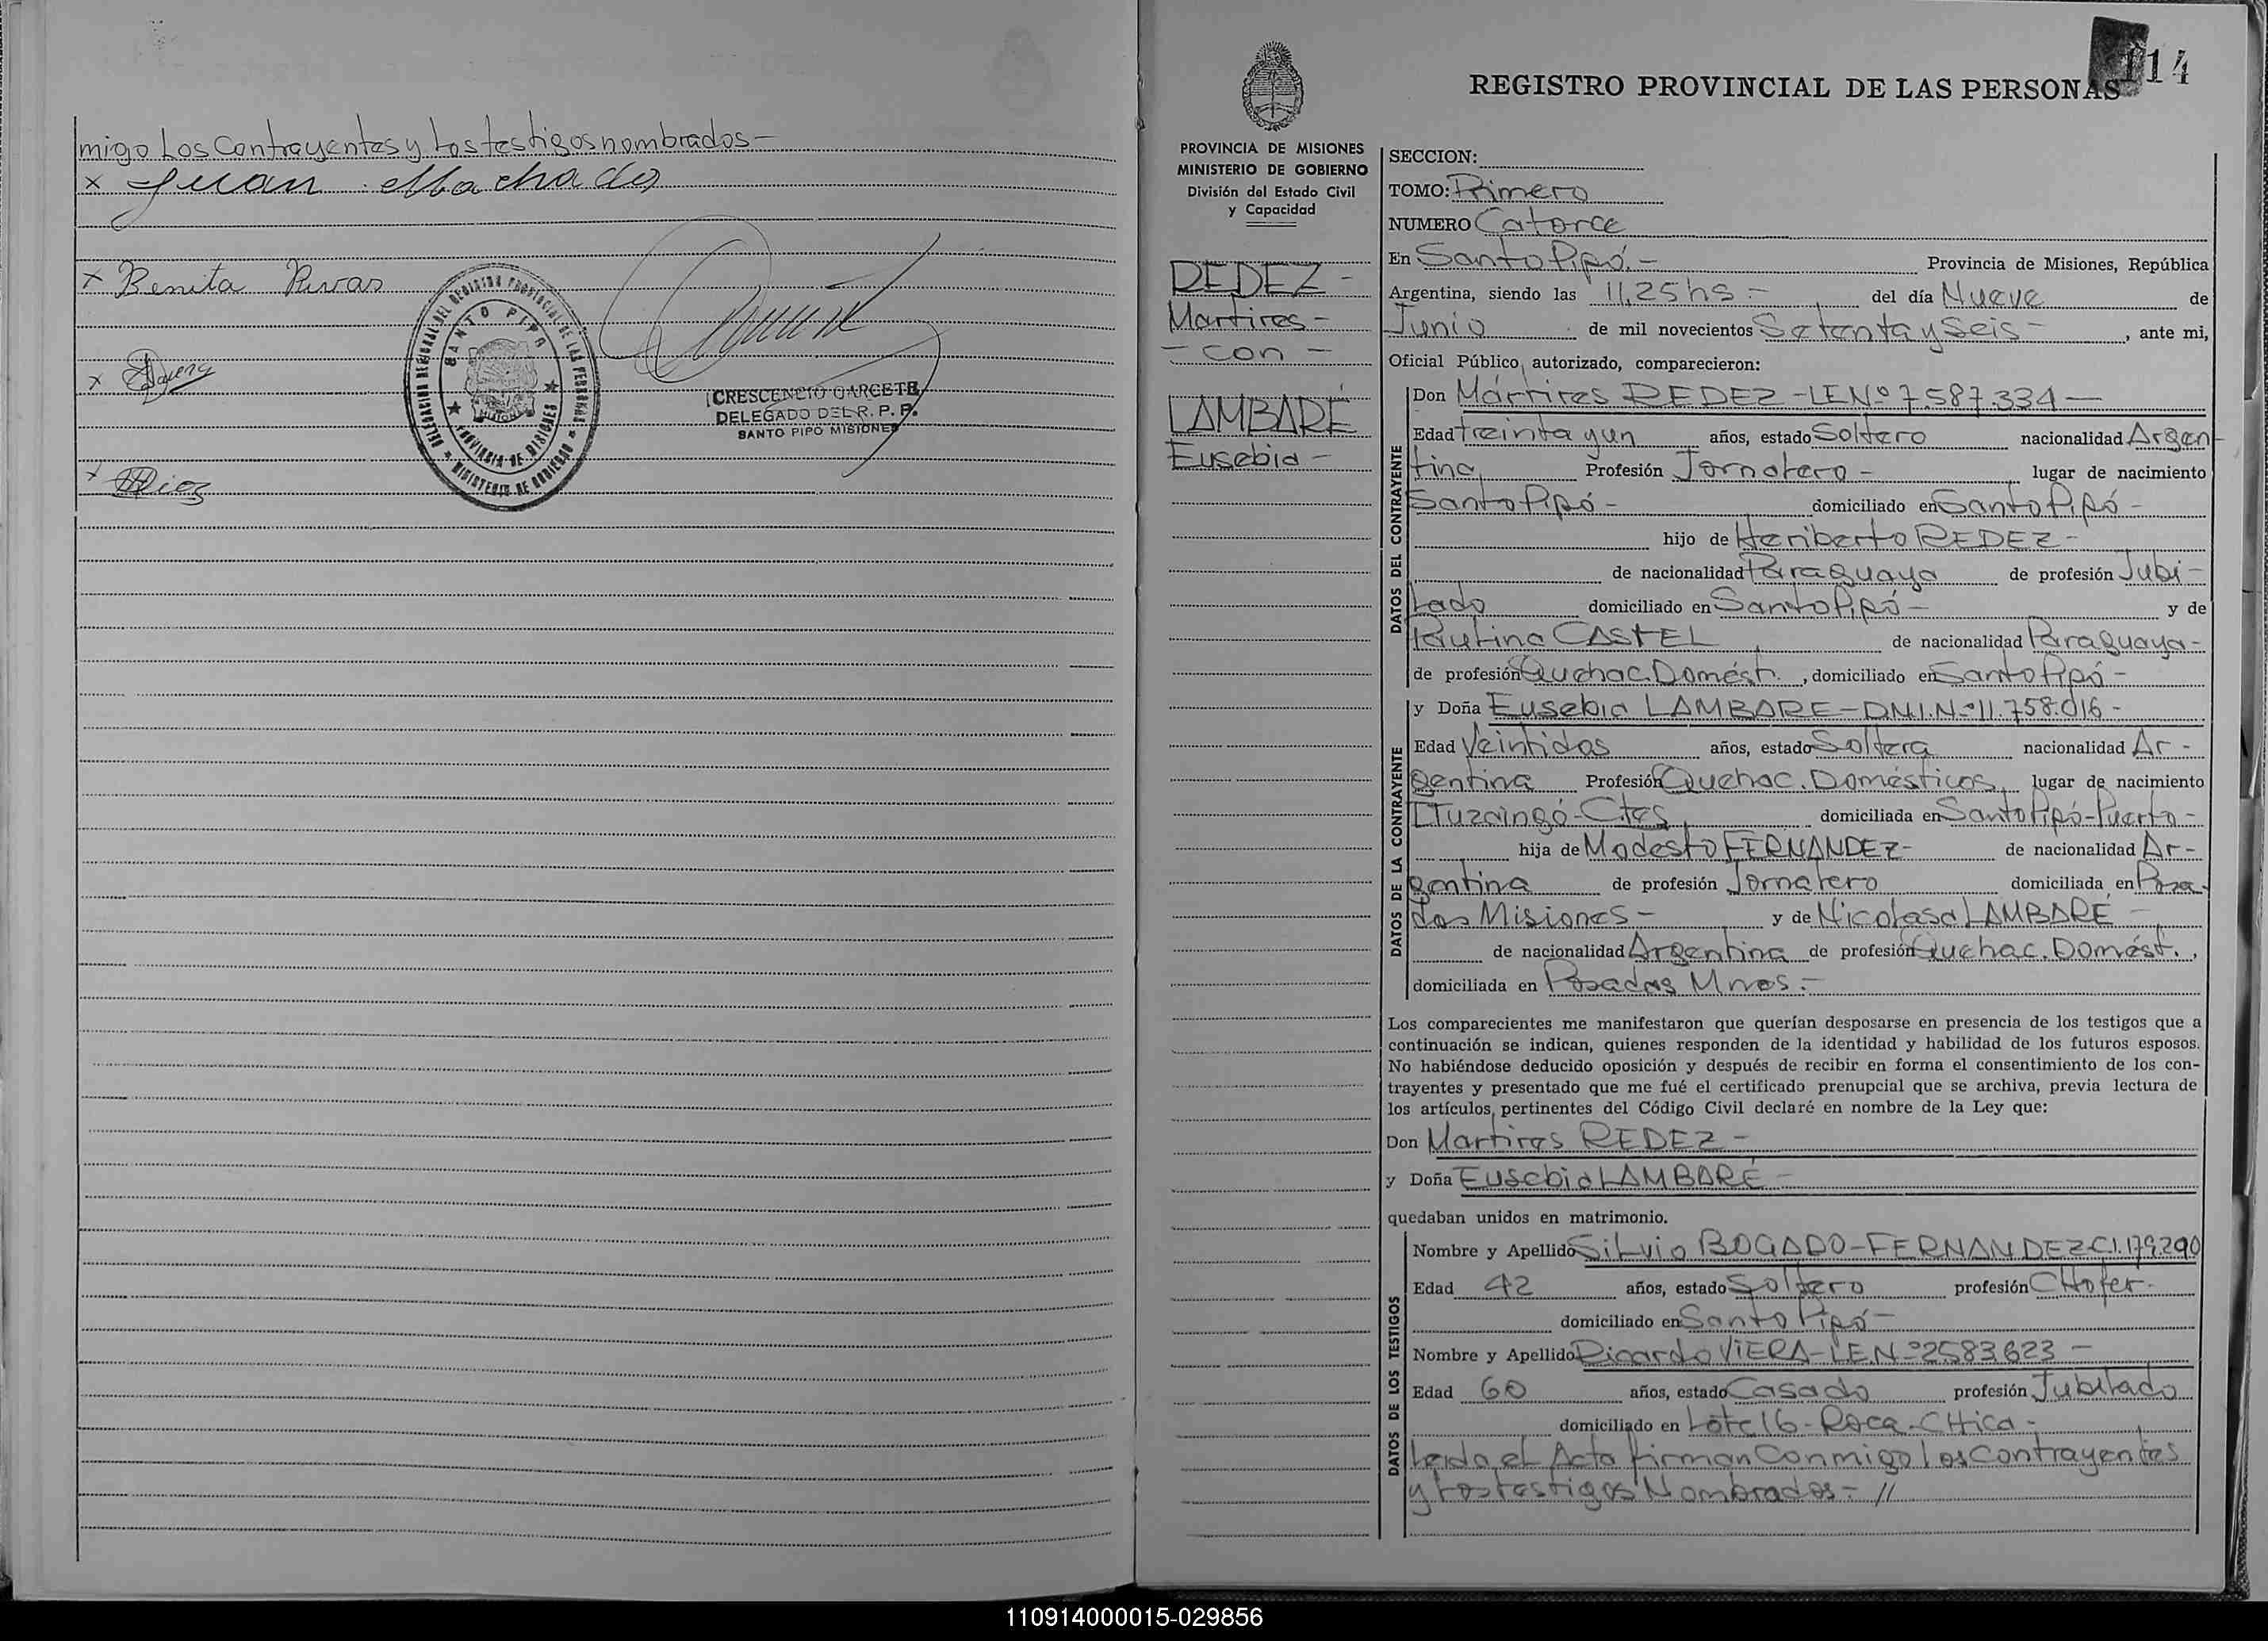 migo Los Contrayentes y Los testigos nombrados-
x Juan Machado
x Benita Rivas
x
x
DELEGACION REGIONAL DEL REGISTRO PROVINCIAL DE LAS PERSONAS
SANTO PIPO
PROVINCIA DE MISIONES
MINISTERIO DE GOBIERNO
CRESCENCIO GARCETE
DELEGADO DEL R. P. P.
SANTO PIPO MISIONES
114
REGISTRO PROVINCIAL DE LAS PERSONAS
PROVINCIA DE MISIONES
MINISTERIO DE GOBIERNO
División del Estado Civil
y Capacidad
REDEZ-
Martires-
-con-
LAMBARÉ
Eusebia-
SECCION:
TOMO: Primero
NUMERO Catorce
En Santo Pipó.- Provincia de Misiones, República
Argentina, siendo las 11,25 hs- del día Nueve de
Junio de mil novecientos Setenta y Seis-, ante mi,
Oficial Público autorizado, comparecieron:
DATOS DEL CONTRAYENTE
Don Mártires REDEZ-LE Nº 7.587.334-
Edad treinta y un años, estado Soltero nacionalidad Argen-
tina Profesión Jornalero- lugar de nacimiento
Santo Pipó- domiciliado en Santo Pipó-
hijo de Heriberto REDEZ-
de nacionalidad Paraguaya de profesión Jubi-
Lado domiciliado en Santo Pipó- y de
Paulina CASTEL de nacionalidad Paraguaya-
de profesión Quehac. Domést., domiciliado en Santo Pipó-
DATOS DE LA CONTRAYENTE
y Doña Eusebia LAMBARE-D.N.I.Nº 11.758.016-
Edad Veintidos años, estado Soltera nacionalidad Ar-
gentina Profesión Quehac. Domésticos lugar de nacimiento
ITuzaingó-Ctes domiciliada en Santo Pipó-Puerto-
hija de Modesto FERNANDEZ- de nacionalidad Ar-
gentina de profesión Jornalero domiciliada en Posa-
das Misiones- y de Nicolasa LAMBARÉ-
de nacionalidad Argentina de profesión Quehac. Domést.,
domiciliada en Posadas Mnes.-
Los comparecientes me manifestaron que querían desposarse en presencia de los testigos que a
continuación se indican, quienes responden de la identidad y habilidad de los futuros esposos.
No habiéndose deducido oposición y después de recibir en forma el consentimiento de los con-
trayentes y presentado que me fué el certificado prenupcial que se archiva, previa lectura de
los artículos pertinentes del Código Civil declaré en nombre de la Ley que:
Don Martires REDEZ-
y Doña Eusebia LAMBARÉ-
quedaban unidos en matrimonio.
DATOS DE LOS TESTIGOS
Nombre y Apellido Silvio BOGADO-FERNANDEZ C.I.179.290
Edad 42 años, estado Soltero profesión CHofer-
domiciliado en Santo Pipó-
Nombre y Apellido Ricardo VIERA-LE.Nº 2583.623-
Edad 60 años, estado Casado profesión Jubilado
domiciliado en Lote 16-Roca-CHica-
Leida el Acta firman Conmigo Los Contrayentes
y Los testigos Nombrados- //
110914000015-029856